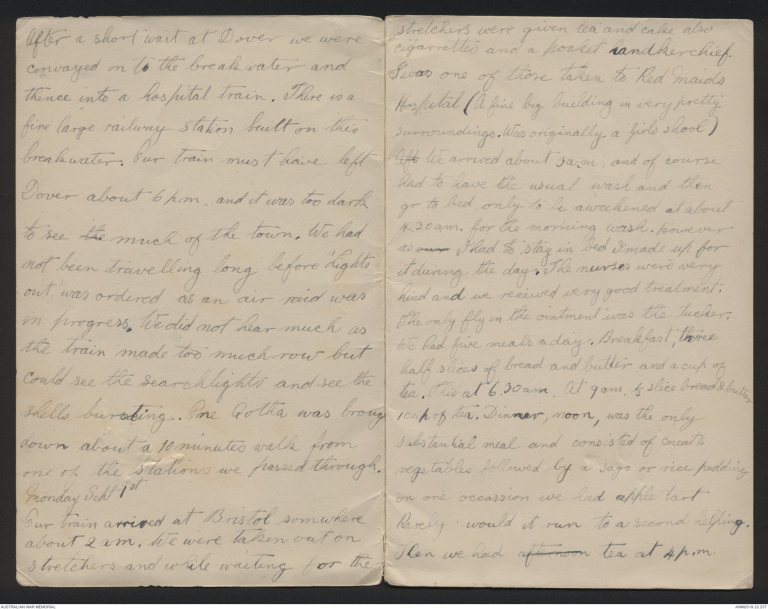 After a short wait at Dover we were
convayed on to the breakwater and
thence into a hospital train. There is a
fine large railway station built on this
breakwater. Our train must have left
Dover about 6 p.m. and it was too dark
to see the much of the town. We had
not been travelling long before "Lights
out," was ordered as an air raid was
in progress. We did not hear much as
the train made too much row but
could see the searchlights and see the
shells bursting. One Gotha was broug
down about a 10 minutes walk from
one of the stations we passed through.
Monday Sept 1st
Our train arrived at Bristol somwhere
about 2 am. We were taken out on
stretchers and while waiting for the
stretchers were given tea and cake also
cigarrettes and a pocket handkerchief.
I was one of those taken to Red Maids
Hospital (A fine big building in very pretty
surroundings. Was originally a Girls shool)
Aft We arrived about 3 a.m. and of course
had to have the usual wash and then
go to bed only to be awakened at about
4.30 am. for the morning wash. however
as I had to stay in bed I made up for
it during the day. The nurses were very
kind and we received very good treatment.
The only fly in the ointment was the tucker.
We had five meals a day. Breakfast, three
half slices of bread and butter and a cup of
tea. This at 6.30 am. At 9 am. ½ slice bread & butter
1 cup of tea. Dinner, noon, was the only
substantial meal and consisted of meat &
vegetables followed by a sago or rice pudding
on one occassion we had apple tart
Rarely would it run to a second helping.
Then we had afternoon tea at 4 p.m.
AUSTRALIAN WAR MEMORIAL